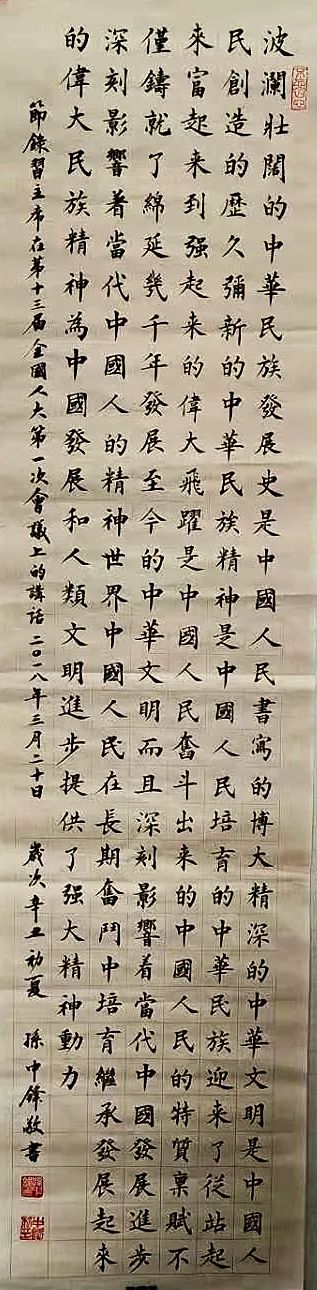 波瀾壯闊的中華民族發展史是中國人民書寫的博大精深的中華文明是中國人
民創造的歷久彌新的中華民族精神是中國人民培育的中華民族迎來了從站起
來富起来到强起来的偉大飛躍是中國人民奮斗出來的中國人民的特質稟賦不
僅鑄就了綿延幾千年發展至今的中華文明而且深刻影響着當代中國發展進步
深刻影響着當代中國人的精神世界中國人民在長期奮鬥中培育繼承發展起來
的偉大民族精神為中國發展和人類文明進步提供了强大精神動力
節錄習主席在第十三届全國人大第一次會議上的講話 二〇一八年三月二十日 歲次辛丑初夏 孫中鋒敬書